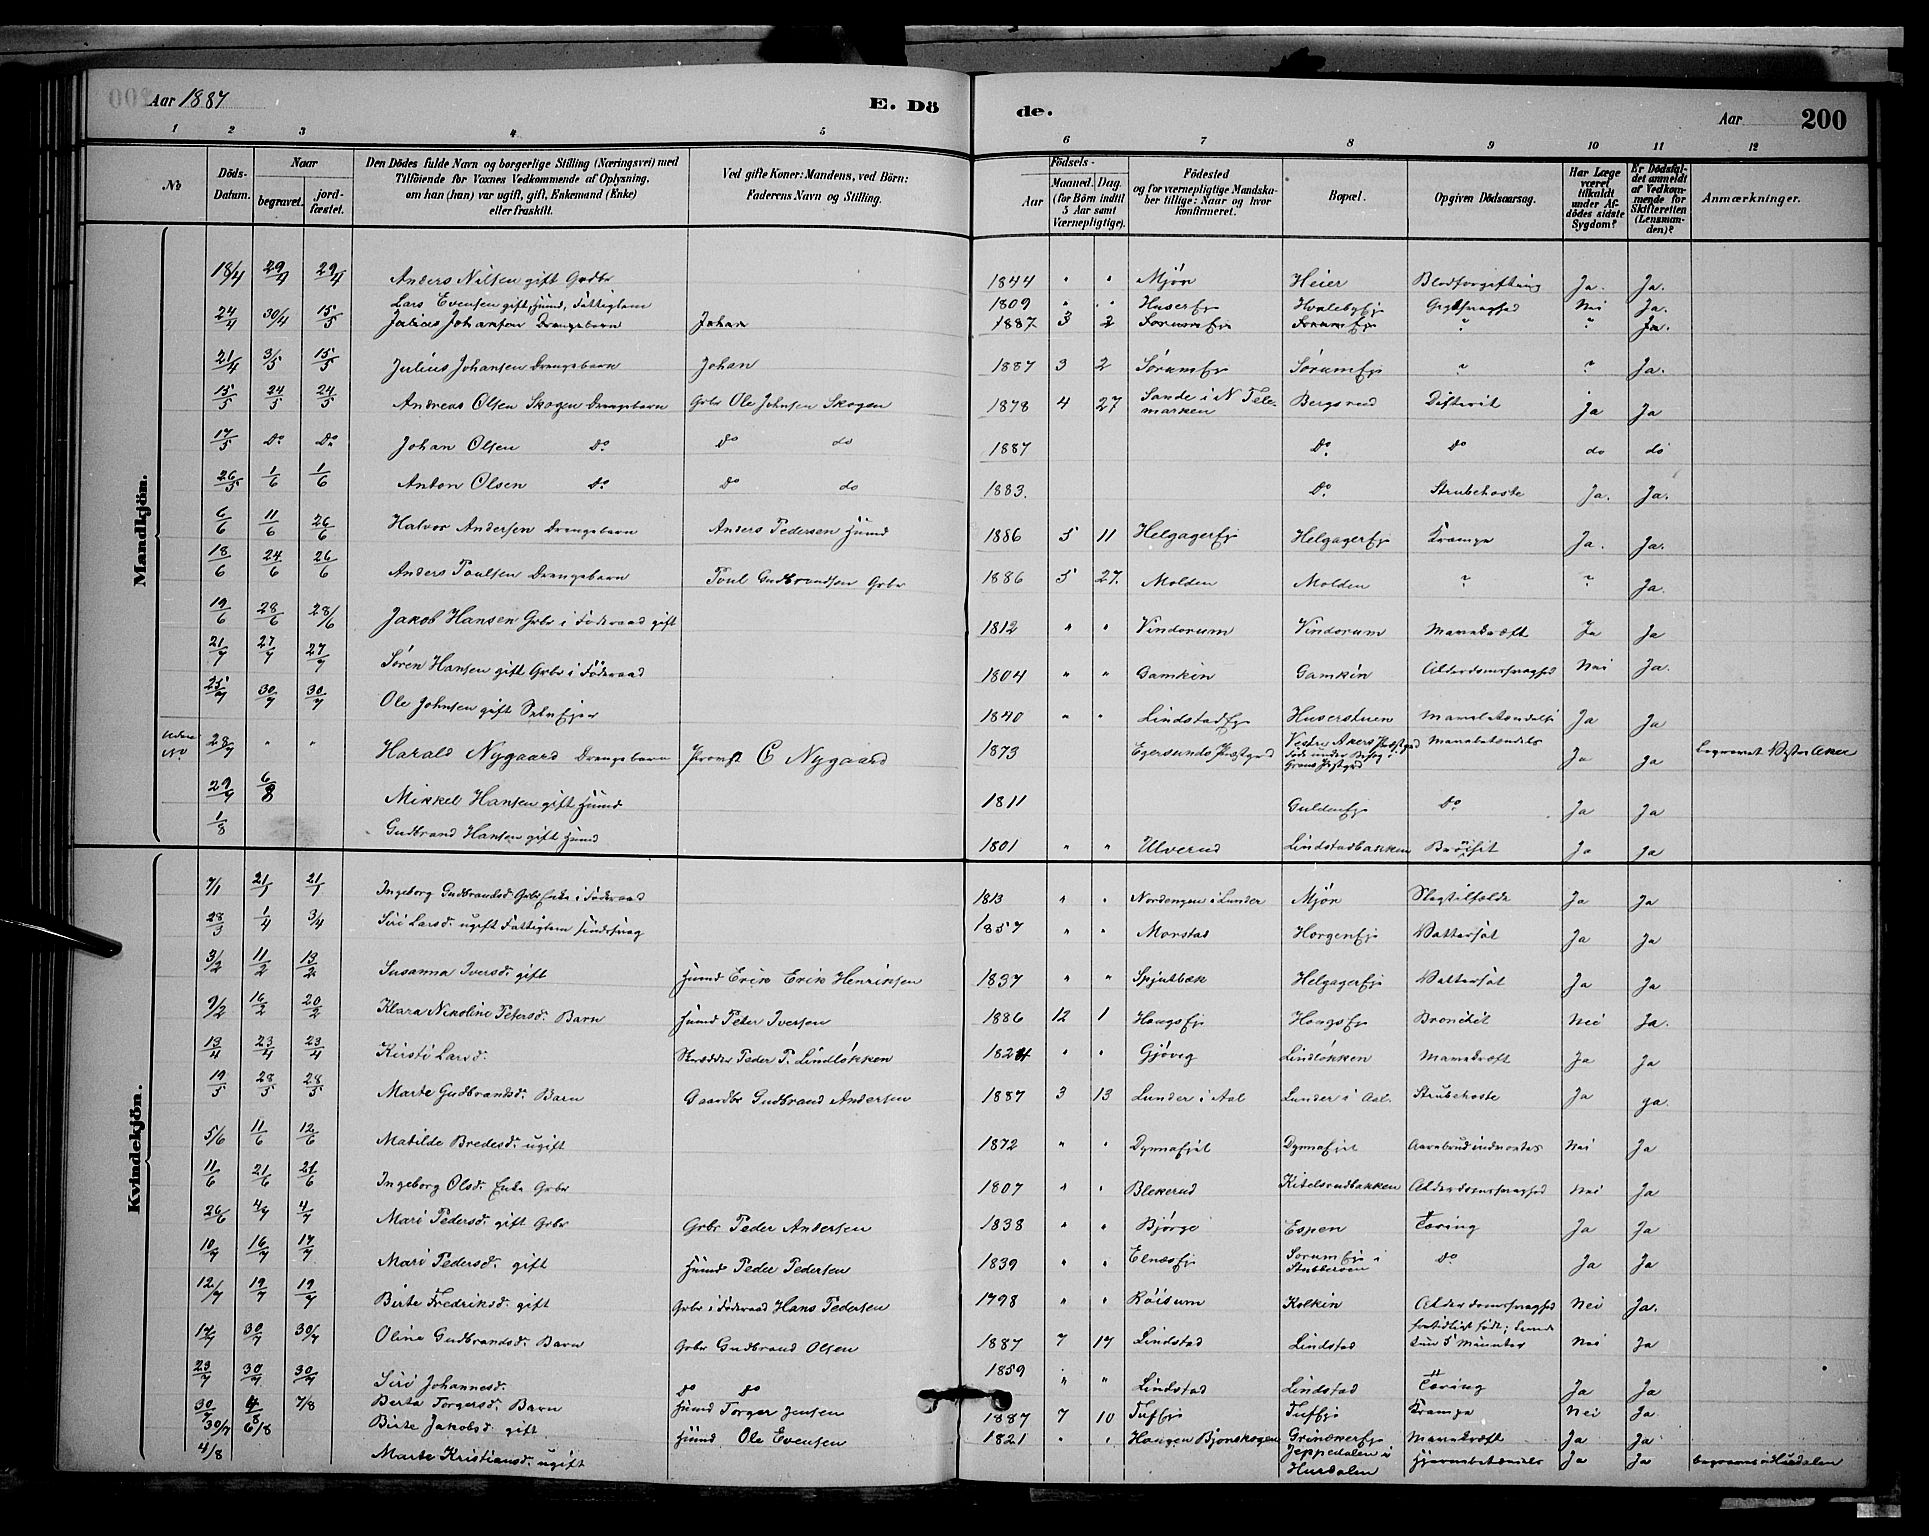 Aar 1887 E. Dö de. Aar 200
1 2 3 4 5 6 7 8 9 10 11 12
No
Döds-Datum.
Naar begravet. jord-fæstet.
Den Dödes fulde Navn og borgerlige Stilling (Næringsvei) med Tilföiende for Voxnes Vedkommende af Oplysning, om han (han) var ugift, gift, Enkemand (Enke) eller fraskilt.
Ved gifte Koner: Mandens, ved Börn: Faderens Navn og Stilling.
Födsels- Aar Maaned. Dag. (for Börn indtil 5 Aar samt Værnepligtige).
Födested og for værnepligtige Mandskaber tillige: Naar og hvor konfirmeret.
Bopæl.
Opgiven Dödsaarsag.
Har Læge været tilkaldt under Afdödes sidste Sygdom?
Er Dödsfaldet anmeldt af Vedkommende for Skifteretten (Lensmanden)?
Anmærkninger.
Mandkjön.
18/4 29/4 29/4 Anders Nilsen gift Grdbr 1844 " " Mjør Heier Blodforgiftning Ja. Ja.
Lars Evensen gift, Huusm, Fattiglem 1809 " " Huserejn Hvalebyejn Gigtsvaghed Nei Ja.
24/4 30/4 15/5 Julius Johansen Drengebarn Johan 1887 3 2 Sørumejn Sørumejn " " Ja.
21/4 3/5 15/5 Julius Johansen Drengebarn Johan 1887 3 2 Sørumejn Sørumejn " " Ja.
15/5 24/5 24/5 Andreas Olsen Skogen Drengebarn Grbr Ole Johnsen Skogen 1878 4 27 Sande i N Telemarken Bergsrud Difterit Ja Ja
17/5 Do Do Johan Olsen Do Do do 1887 Do Do do do
26/5 1/6 1/6 Anton Olsen Do Do do 1883. Do Strubehoste Ja. Ja.
6/6 11/6 26/6 Halvor Andersen Drengebarn Anders Pedersen Husmd 1886 5 11 Helgagerejn Helgagerejn Krampe Ja. Ja.
18/6 24/6 26/6 Anders Poulsen Drengebarn Poul Gudbrandsen Grbr 1886 5 27. Molden Molden " " Ja.
19/6 28/6 28/6 Jakob Hansen Grbr i Föderaad gift 1812 " " Vindorum Vindorum Mavekræft Ja Ja
21/7 27/7 27/7 Søren Hansen gift Grbr i Föderaad 1804 " " Gamkin Gamkin Alderdomssvaghed Nei Ja.
25/7 30/7 30/7 Ole Johnsen gift Selvejer 1840 " " Lindstadejn Huserstuen Ja Ja
Uden No. 28/7 " " Harald Nygaard Drengebarn Provst C Nygaard 1873 Egersunds Præstgjd Vestre Akers Præstgjd døde under Besøg i Grans Præstgjd Mavebetændelse Ja Ja begravet Vestre Aker
29/7 6/8 Mikkel Hansen gift Husmd 1811 Guldenejn Do Ja Ja
1/8 Gudbrand Hansen gift Husmd 1801 " " Ulverud Lindstadbakken Ja Ja
Kvindekjön.
7/1 21/1 21/1 Ingeborg Gudbrandsd. Grbr Enke i Föderaad 1813 " " Nordengen i Lunder Mjør Slagtilfælde Ja Ja
28/3 1/4 3/4 Siri Larsd. ugift Fattiglem sindssvag 1857 " " Morstad Horgenejn Vattersot Ja Ja
3/2 11/2 13/2 Susanna Iversd. gift Husmd Erik Erik Henriksen 1837 " " Spjutbæk Helgagerejn Vattersot Ja Ja
9/2 16/2 20/2 Klara Nikoline Petersd. Barn Husmd Peter Iversen 1886 12 1 Haugsejn Haugsejn Bronchit Nei Ja.
13/4 23/4 23/4 Kirsti Larsd. Skrædder Peder P. Lindløkken 1824 " " Gjøvig Lindløkken Mavekræft Ja Ja
19/5 28/5 28/5 Marte Gudbrandsd. Barn Gaardbr Gudbrand Andersen 1887 3 13 Lunder i Aal Lunder i Aal. Strubehoste Ja Ja.
5/6 11/6 12/6 Matilde Bredesd. ugift 1872 " " Dynnaejet Dynnaejet Nei Ja
11/6 21/6 21/6 Ingeborg Olsd. Enke Grbr 1807 " " Blekerud Kitelsrudbakken Alderdomssvaghed Nei Ja
26/6 4/7 4/7 Mari Pedersd. gift Grbr Grbr Peder Andersen 1838 " " Bjørge Espen Tæring Ja Ja
10/7 16/7 17/7 Mari Pedersd. gift Husmd Peder Pedersen 1839 " " Elnæsejn Sørumejn i Do Ja Ja
12/7 19/7 19/7 Birte Fredriksd. gift Grbr i Föderaad Hans Pedersen 1798 " " Røisum Kolkin Alderdomssvaghed Nei Ja.
17/7 30/7 30/7 Oline Gudbrandsd. Barn Grbr Gudbrand Olsen 1887 7 17 Lindstad Lindstad fortidligt født; levede kun 5 Minutter Nei Ja
23/7 30/7 30/7 Siri Johannesd. Do Do 1859 " " Lindstad Lindstad Tæring Ja Ja
30/7 4/8 7/8 Berta Torgersd. Barn Husmd Torger Jensen 1887 7 10 Tufejn Tufejn Krampe Nei Ja
30/7 6/8 Birte Jakobsd. gift Husmd Ole Evensen 1821 " " Haugen Bjoneskogen Grinakerejn Mavekræft Ja Ja
4/8 Marte Kristiansd. ugift Jeppedalen i Hurdalen Hjernebetændelse Ja Ja begraves i Hurdalen